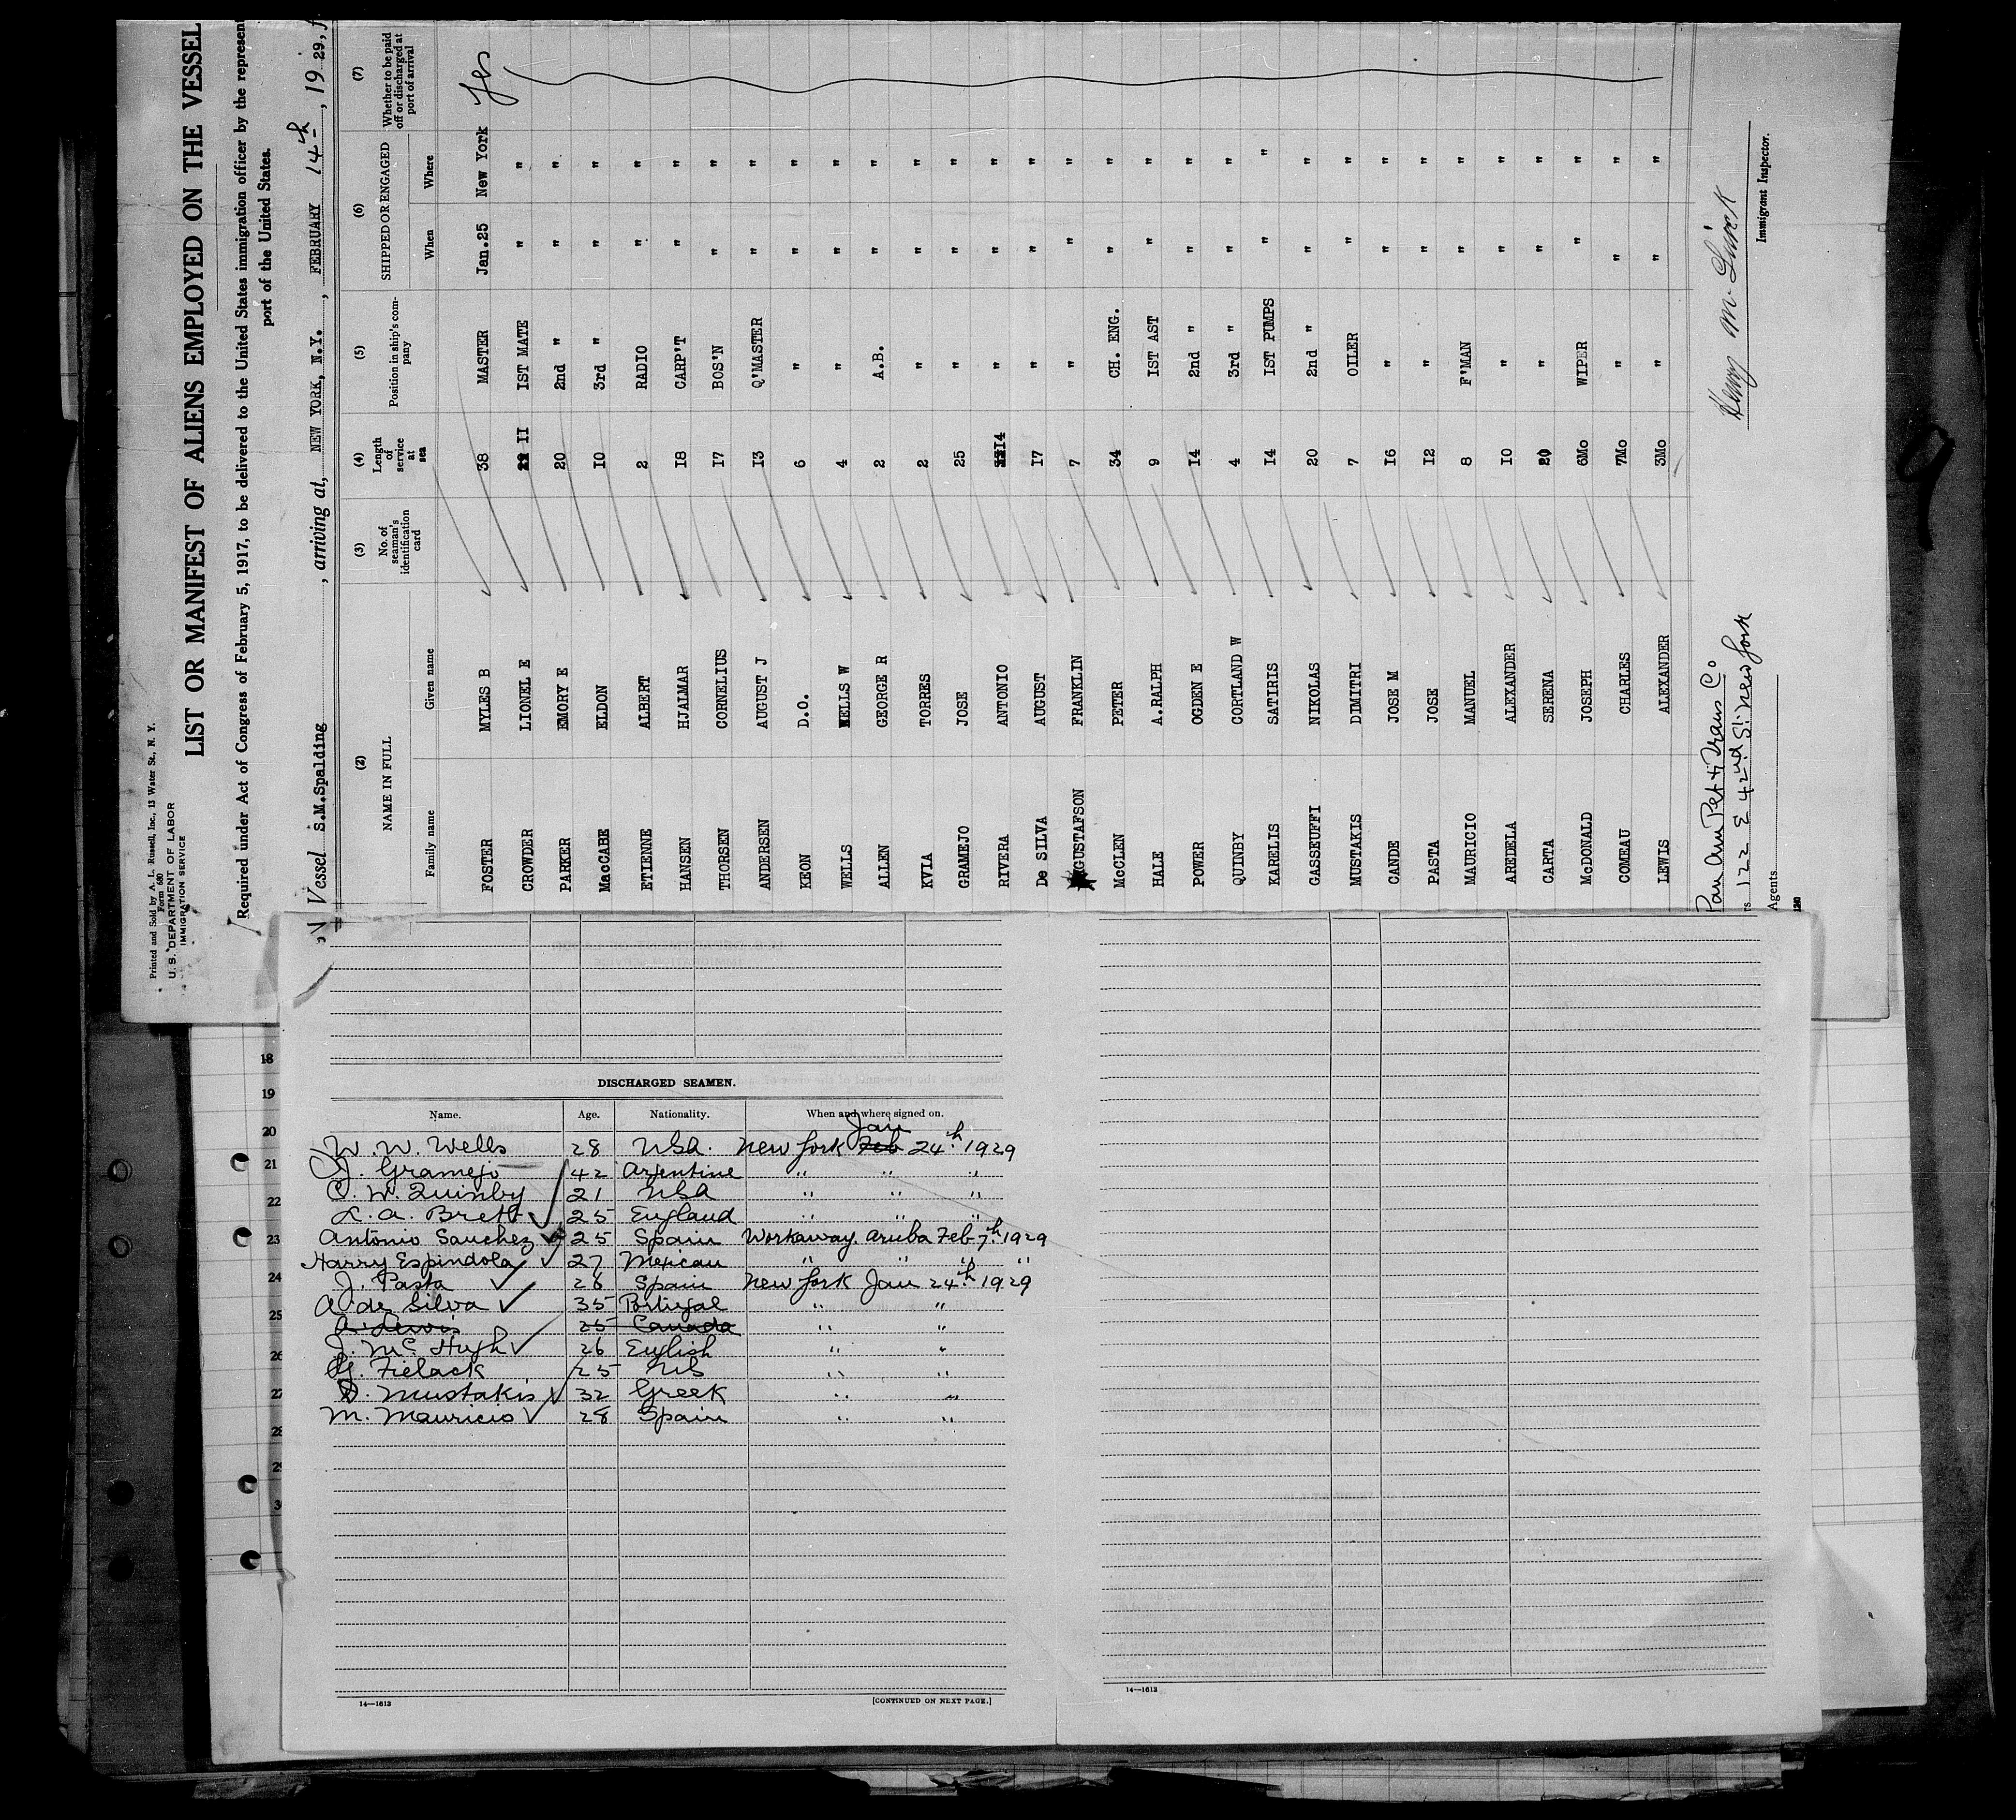 Printed and Sold by A. L. Russell, Inc., 13 Water St., N. Y.
Form 680
U. S. DEPARTMENT OF LABOR
IMMIGRATION SERVICE
LIST OR MANIFEST OF ALIENS EMPLOYED ON THE VESSEL
Required under Act of Congress of February 5, 1917, to be delivered to the United States immigration officer by the represen
port of the United States.
Vessel S.M.Spalding, arriving at, NEW YORK, N.Y., FEBRUARY 14th, 1929, f
(2) (3) (4) (5) (6) (7)
NAME IN FULL No. of seaman's identification card Length of service at sea Position in ship's company SHIPPED OR ENGAGED Whether to be paid off or discharged at port of arrival
Family name Given name When Where
FOSTER MYLES B 38 MASTER Jan.25 New York Yes
CROWDER LIONEL E II IST MATE " "
PARKER EMORY E 20 2nd " " "
MacCABE ELDON IO 3rd " " "
ETIENNE ALBERT 2 RADIO " "
HANSEN HJALMAR I8 CARP'T " "
THORSEN CORNELIUS I7 BOS'N " "
ANDERSEN AUGUST J I3 Q'MASTER " "
KEON D.O. 6 " " "
WELLS WELLS W 4 " " "
ALLEN GEORGE R 2 A.B. " "
KVIA TORRES 2 " " "
GRAMEJO JOSE 25 " " "
RIVERA ANTONIO I4 " " "
De SILVA AUGUST I7 " " "
GUSTAFSON FRANKLIN 7 " " "
McCLEN PETER 34 CH. ENG. " "
HALE A.RALPH 9 IST AST " "
POWER OGDEN E I4 2nd " " "
QUINBY CORTLAND W 4 3rd " " "
KARELIS SATIRIS I4 IST PUMPS " "
GASSEUFFI NIKOLAS 20 2nd " " "
MUSTAKIS DIMITRI 7 OILER " "
CANDE JOSE M I6 " " "
PASTA JOSE I2 " " "
MAURICIO MANUEL 8 F'MAN " "
AREDELA ALEXANDER IO " " "
CARTA SERENA 20 " " "
McDONALD JOSEPH 6Mo WIPER " "
COMEAU CHARLES 7Mo " " "
LEWIS ALEXANDER 3Mo " " "
Pan Am Pet & Trans Co
rs 122 E 42nd St. New York
Agents
Henry
Immigrant Inspector.
9
18
19
20
21
22
23
24
25
26
27
28
29
3
DISCHARGED SEAMEN.
Name. Age. Nationality. When and where signed on.
W. W. Wells 28 USA. New York Feb Jan 24th 1929
J. Gramejo 42 Argentine " " "
C. W. Quinby 21 USA " " "
L. A. Brett 25 England " " "
Antonio Sanchez 25 Spain Workaway. Aruba Feb 7th 1929
Harry Espindola 27 Mexican " " "
J. Pasta 28 Spain New York Jan 24th 1929
A. de Silva 35 Portugal " "
A. Lewis 25 Canada " "
J. Mc Hugh 26 English " "
G. Fielack 25 US " "
D. Mustakis 32 Greek " "
M. Mauricio 28 Spain " "
14—1613
[CONTINUED ON NEXT PAGE.]
14—1613